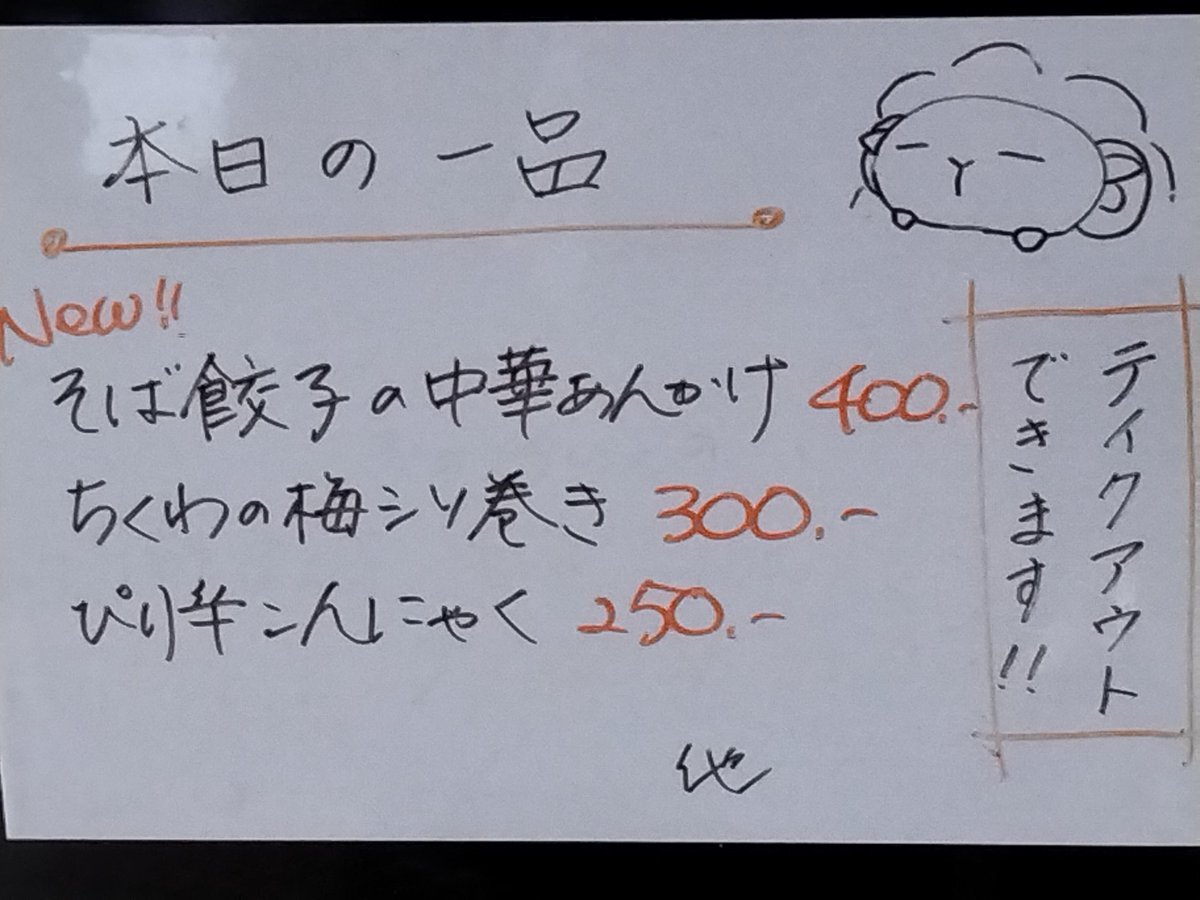 本日の一品
New!!
そば餃子の中華あんかけ 400.-
ちくわの梅シソ巻き 300.-
ぴり辛こんにゃく 250.-
他
テイクアウト
できます!!